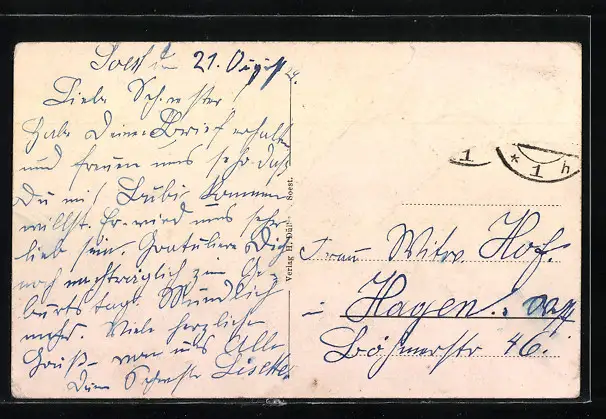 Soest den 21. August 24.
Liebe Schwester
Habe Deinen Brief erhalten
und freuen uns sehr daß
Du mit Bubi kommen
willst. Er wird uns sehr
lieb sein. Gratuliere Dich
noch nachträglich zum Ge-
burtstage. Mündlich
mehr. Viele herzliche
Grüße von uns Alle
Deine Schwester Lisette
Verlag H. Soest.
1
* 1 h
Frau Witw. Hof.
in Hagen.
Böhmerstr 46.